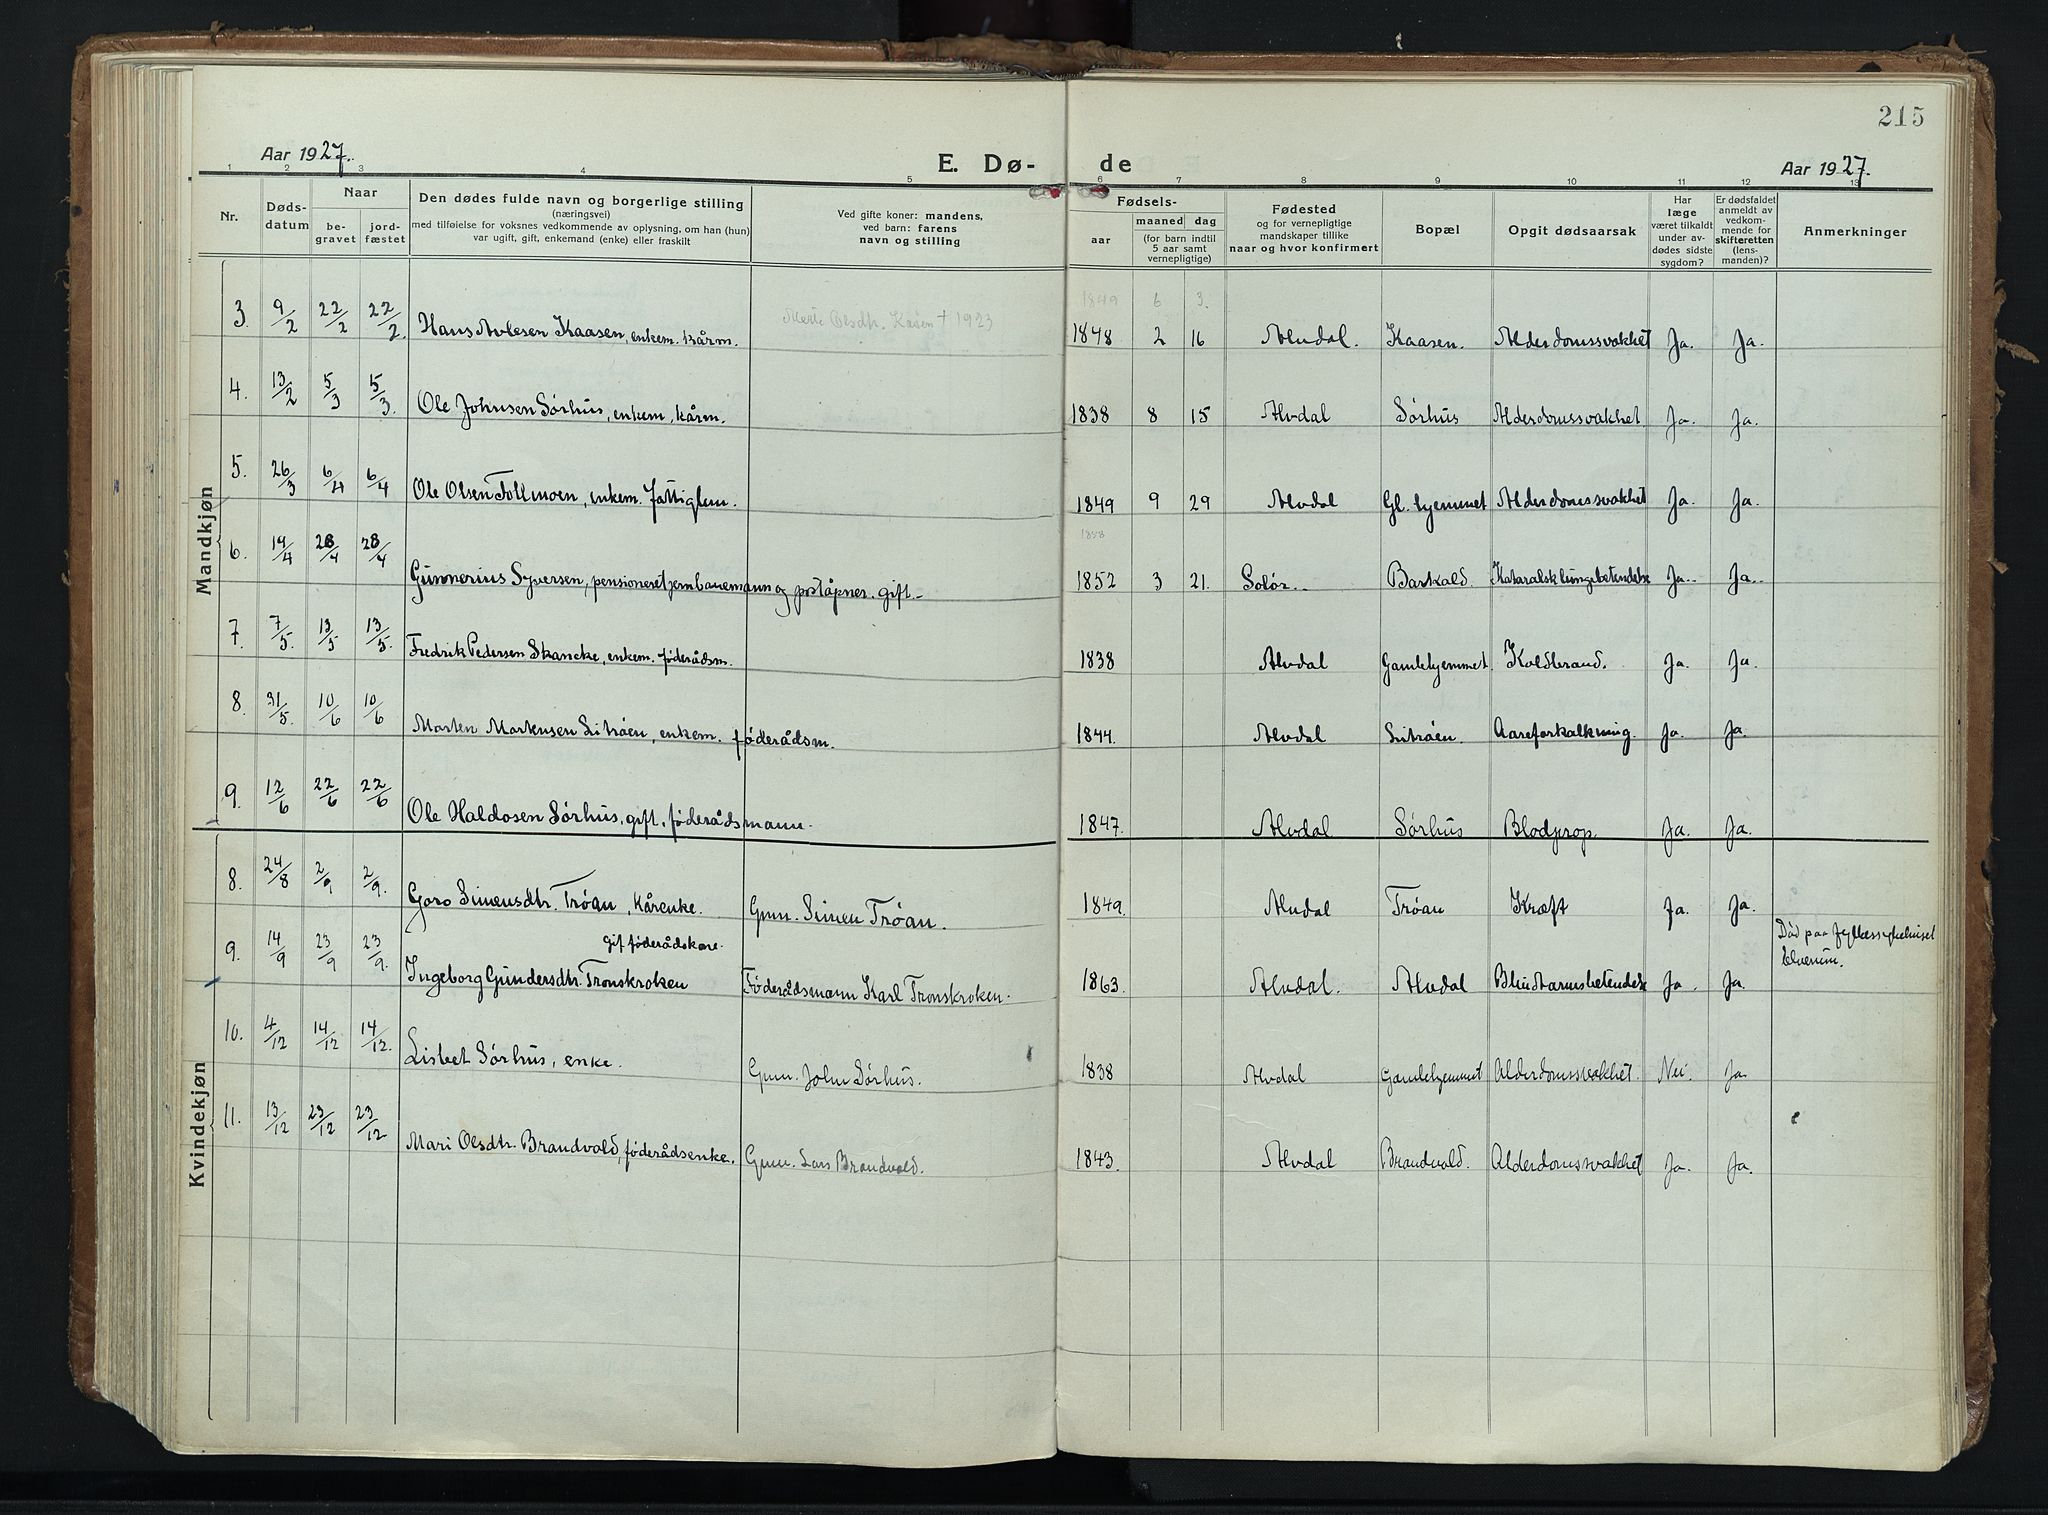 215
Aar 1927.
E. Dø-
de
Aar 1927.
1 2 3 4 5 6 7 8 9 10 11 12 13
Nr.
Døds-
datum
Naar
be-
gravet
jord-
fæstet
Den dødes fulde navn og borgerlige stilling
(næringsvei)
med tilføielse for voksnes vedkommende av oplysning, om han (hun)
var ugift, gift, enkemand (enke) eller fraskilt
Ved gifte koner: mandens,
ved barn: farens
navn og stilling
Fødsels-
aar
maaned dag
(for barn indtil
5 aar samt
vernepligtige)
Fødested
og for vernepligtige
mandskaper tillike
naar og hvor konfirmert
Bopæl
Opgit dødsaarsak
Har
læge
været tilkaldt
under av-
dødes sidste
sygdom?
Er dødsfaldet
anmeldt av
vedkom-
mende for
skifteretten
(lens-
manden)?
Anmerkninger
Mandkjøn
1849 6 3.
3. 9/2 22/2 22/2. Hans Kaasen, enkem. kårm. Olsdtr. Kaasen † 1923 1848 2 16 Alvdal. Kaasen. Alderdomssvakhet Ja. Ja.
4. 13/2 5/3 5/3. Ole Johnsen Sørhus, enkem, kårm. 1838 8 15 Alvdal Sørhus Alderdomssvakhet Ja. Ja.
5. 26/3 6/4 6/4 Ole Olsen Tollmoen, enkem. fattiglem. 1849 9 29 Alvdal Gl. hjemmet Alderdomssvakhet Ja. Ja.
1858
6. 19/4 28/4 28/4 Gunnerius Syversen, pensioneret jernbanemann og poståpner. gift. 1852 3 21. Solør. Barkald. Kataralsk lungebetendelse Ja. Ja.
7. 7/5 13/5 13/5. Fredrik Pedersen Skancke, enkem. føderådsm. 1838 Alvdal Gamlehjemmet. Koldbrand. Ja. Ja.
8. 31/5. 10/6 10/6 Morten Mortensen Litrøen, enkem. føderådsm. 1844. Alvdal Litrøen. Aareforkalkning. Ja. Ja.
9. 12/6 22/6 22/6 Ole Haldosen Sørhus, gift, føderådsmann. 1847. Alvdal Sørhus Blodprop. Ja. Ja.
Kvindekjøn
8. 24/8 2/9 2/9. Goro Simensdtr. Trøan, kårenke. Gmn. Simen Trøan. 1849. Alvdal Trøan Kræft Ja. Ja.
gift føderådskone.
9. 14/9 23/9 23/9. Ingeborg Gundersdtr. Tronskroken Føderådsmann Karl Tronskroken. 1863. Alvdal. Alvdal Blindtarmsbetendelse Ja. Ja. Død paa fylkessykehuset
Elverum.
10. 4/12 14/12 14/12. Lisbet Sørhus, enke. Gmn. John Sørhus. 1838 Alvdal Gamlehjemmet Alderdomssvakhet. Nei. Ja.
11. 13/12 23/12 23/12 Mari Olsdtr. Brandvold, føderådsenke. Gmn. Lars Brandvold. 1843. Alvdal Brandvold. Alderdomssvakhet Ja. Ja.